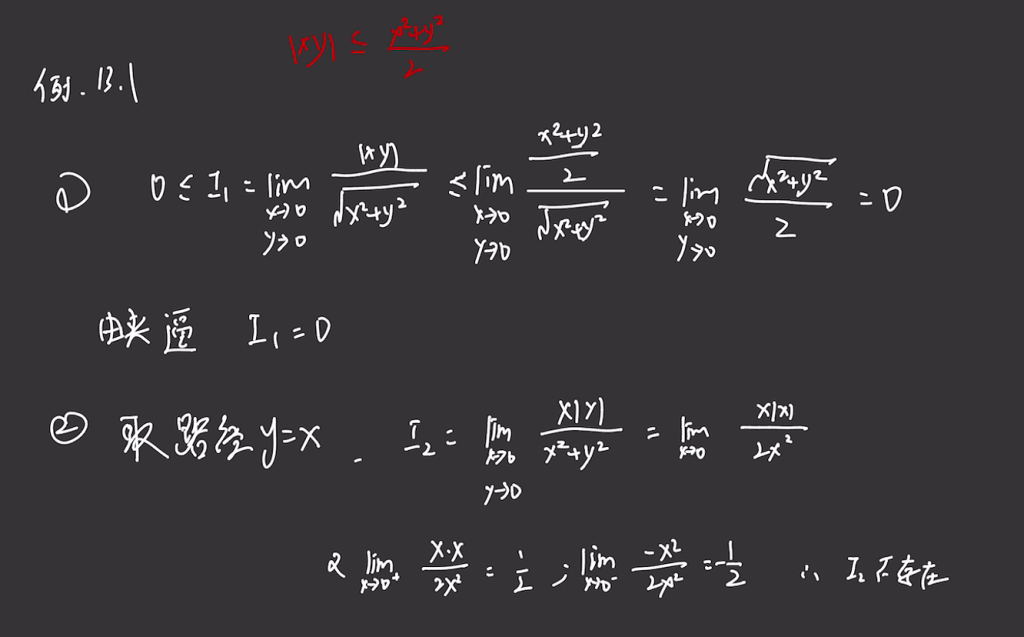 |xy| ≤ (x²+y²)/2
例.13.1
① 0 ≤ I₁ = lim_{x→0, y→0} |xy|/√(x²+y²) ≤ lim_{x→0, y→0} ((x²+y²)/2)/√(x²+y²) = lim_{x→0, y→0} √(x²+y²)/2 = 0
由夹逼 I₁ = 0
② 取路径 y=x . I₂ = lim_{x→0, y→0} x|y|/(x²+y²) = lim_{x→0} x|x|/(2x²)
lim_{x→0⁺} x·x/(2x²) = 1/2 ; lim_{x→0⁻} -x²/(2x²) = -1/2 ∴ I₂ 不存在